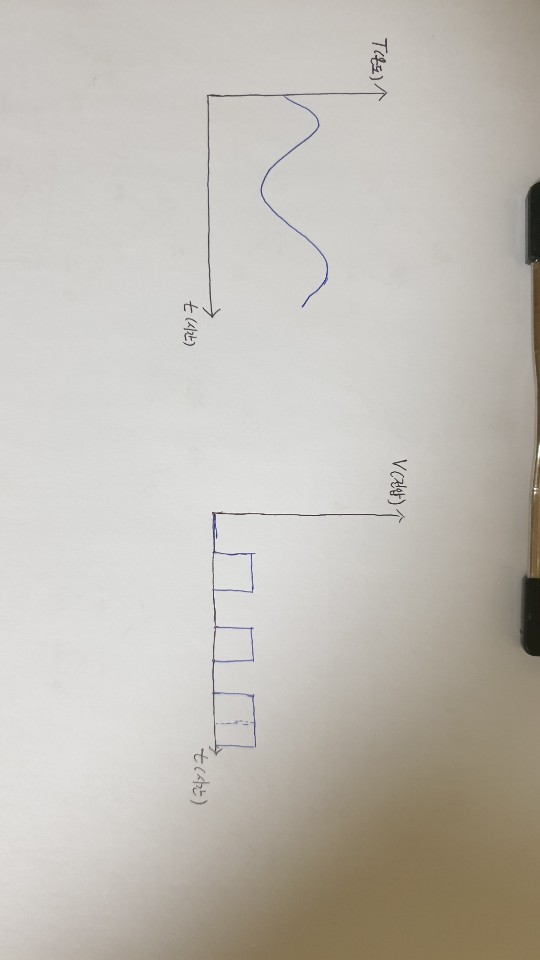 T(온도)
t(시간)
V(전압)
t(시간)